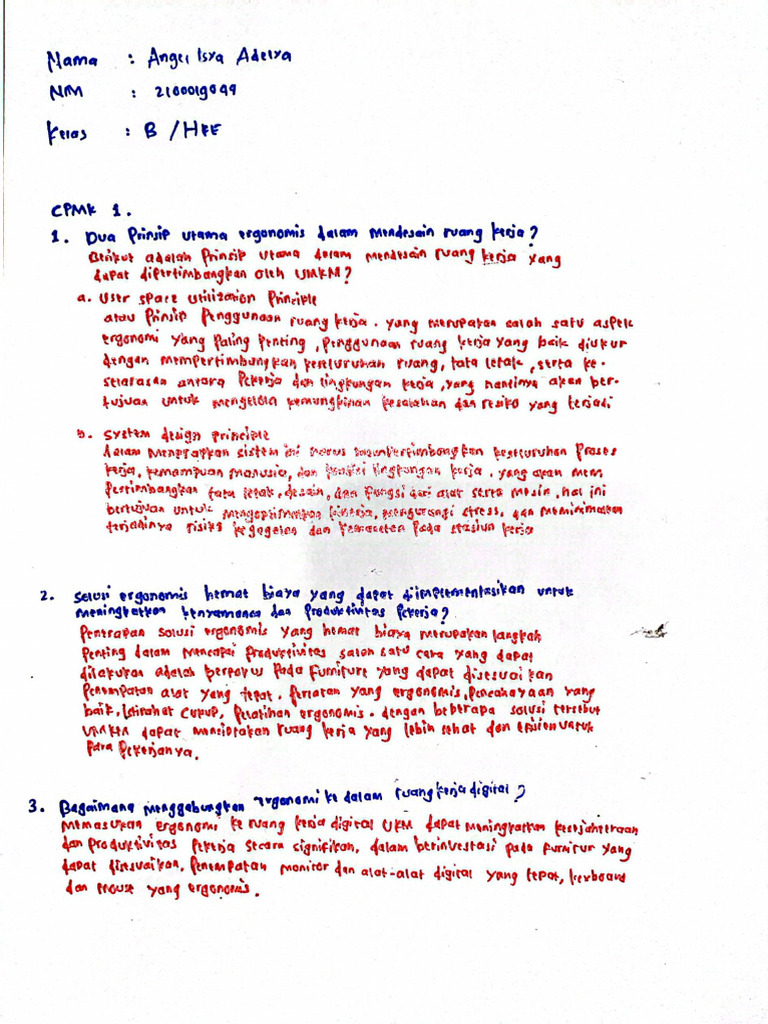 Nama : Angel Isya Adelya
NIM : 2100019099
Kelas : B / HKE
CPMK 1.
1. Dua Prinsip utama ergonomis dalam mendesain ruang kerja?
Berikut adalah Prinsip utama dalam mendesain ruang kerja yang
dapat dipertimbangkan oleh UMKM?
a. User space utilization Principle
atau Prinsip Penggunaan ruang kerja. yang merupakan salah satu aspek
ergonomi yang Paling Penting, Penggunaan ruang kerja yang baik diukur
dengan mempertimbangkan keseluruhan ruang, tata letak, serta ke-
selarasan antara Pekerja dan lingkungan kerja, yang nantinya akan ber-
tujuan untuk mengelola kemungkinan kesalahan dan resiko yang terjadi
b. System design principle
dalam menerapkan sistem ini harus mempertimbangkan keseluruhan Proses
kerja, kemampuan manusia, dan kondisi lingkungan kerja. yang akan mem
Pertimbangkan tata letak, desain, dan fungsi dari alat serta mesin, hal ini
bertujuan untuk mengoptimalkan kinerja, mengurangi stress, dan meminimalkan
terjadinya risiko kegagalan dan Pada stasiun kerja
2. Solusi ergonomis hemat biaya yang dapat diimplementasikan untuk
meningkatkan kenyamanan dan Produktivitas Pekerja?
Penerapan solusi ergonomis yang hemat biaya merupakan langkah
Penting dalam mencapai Produktivitas salah satu cara yang dapat
dilakukan adalah berfokus Pada Furniture yang dapat disesuaikan
Penempatan alat yang tepat, Perlatan yang ergonomis, Pencahayaan yang
baik, istirahat cukup, Pelatihan ergonomis. dengan beberapa solusi tersebut
UMKM dapat menciptakan ruang kerja yang lebih sehat dan efisien untuk
Para Pekerjanya.
3. Bagaimana menggabungkan ergonomi ke dalam ruang kerja digital?
Memasukan ergonomi ke ruang kerja digital UKM dapat meningkatkan kesejahteraan
dan Produktivitas Pekerja secara signifikan. dalam berinvestasi pada furnitur yang
dapat disesuaikan, Penempatan monitor dan alat-alat digital yang tepat, keyboard
dan mouse yang ergonomis.